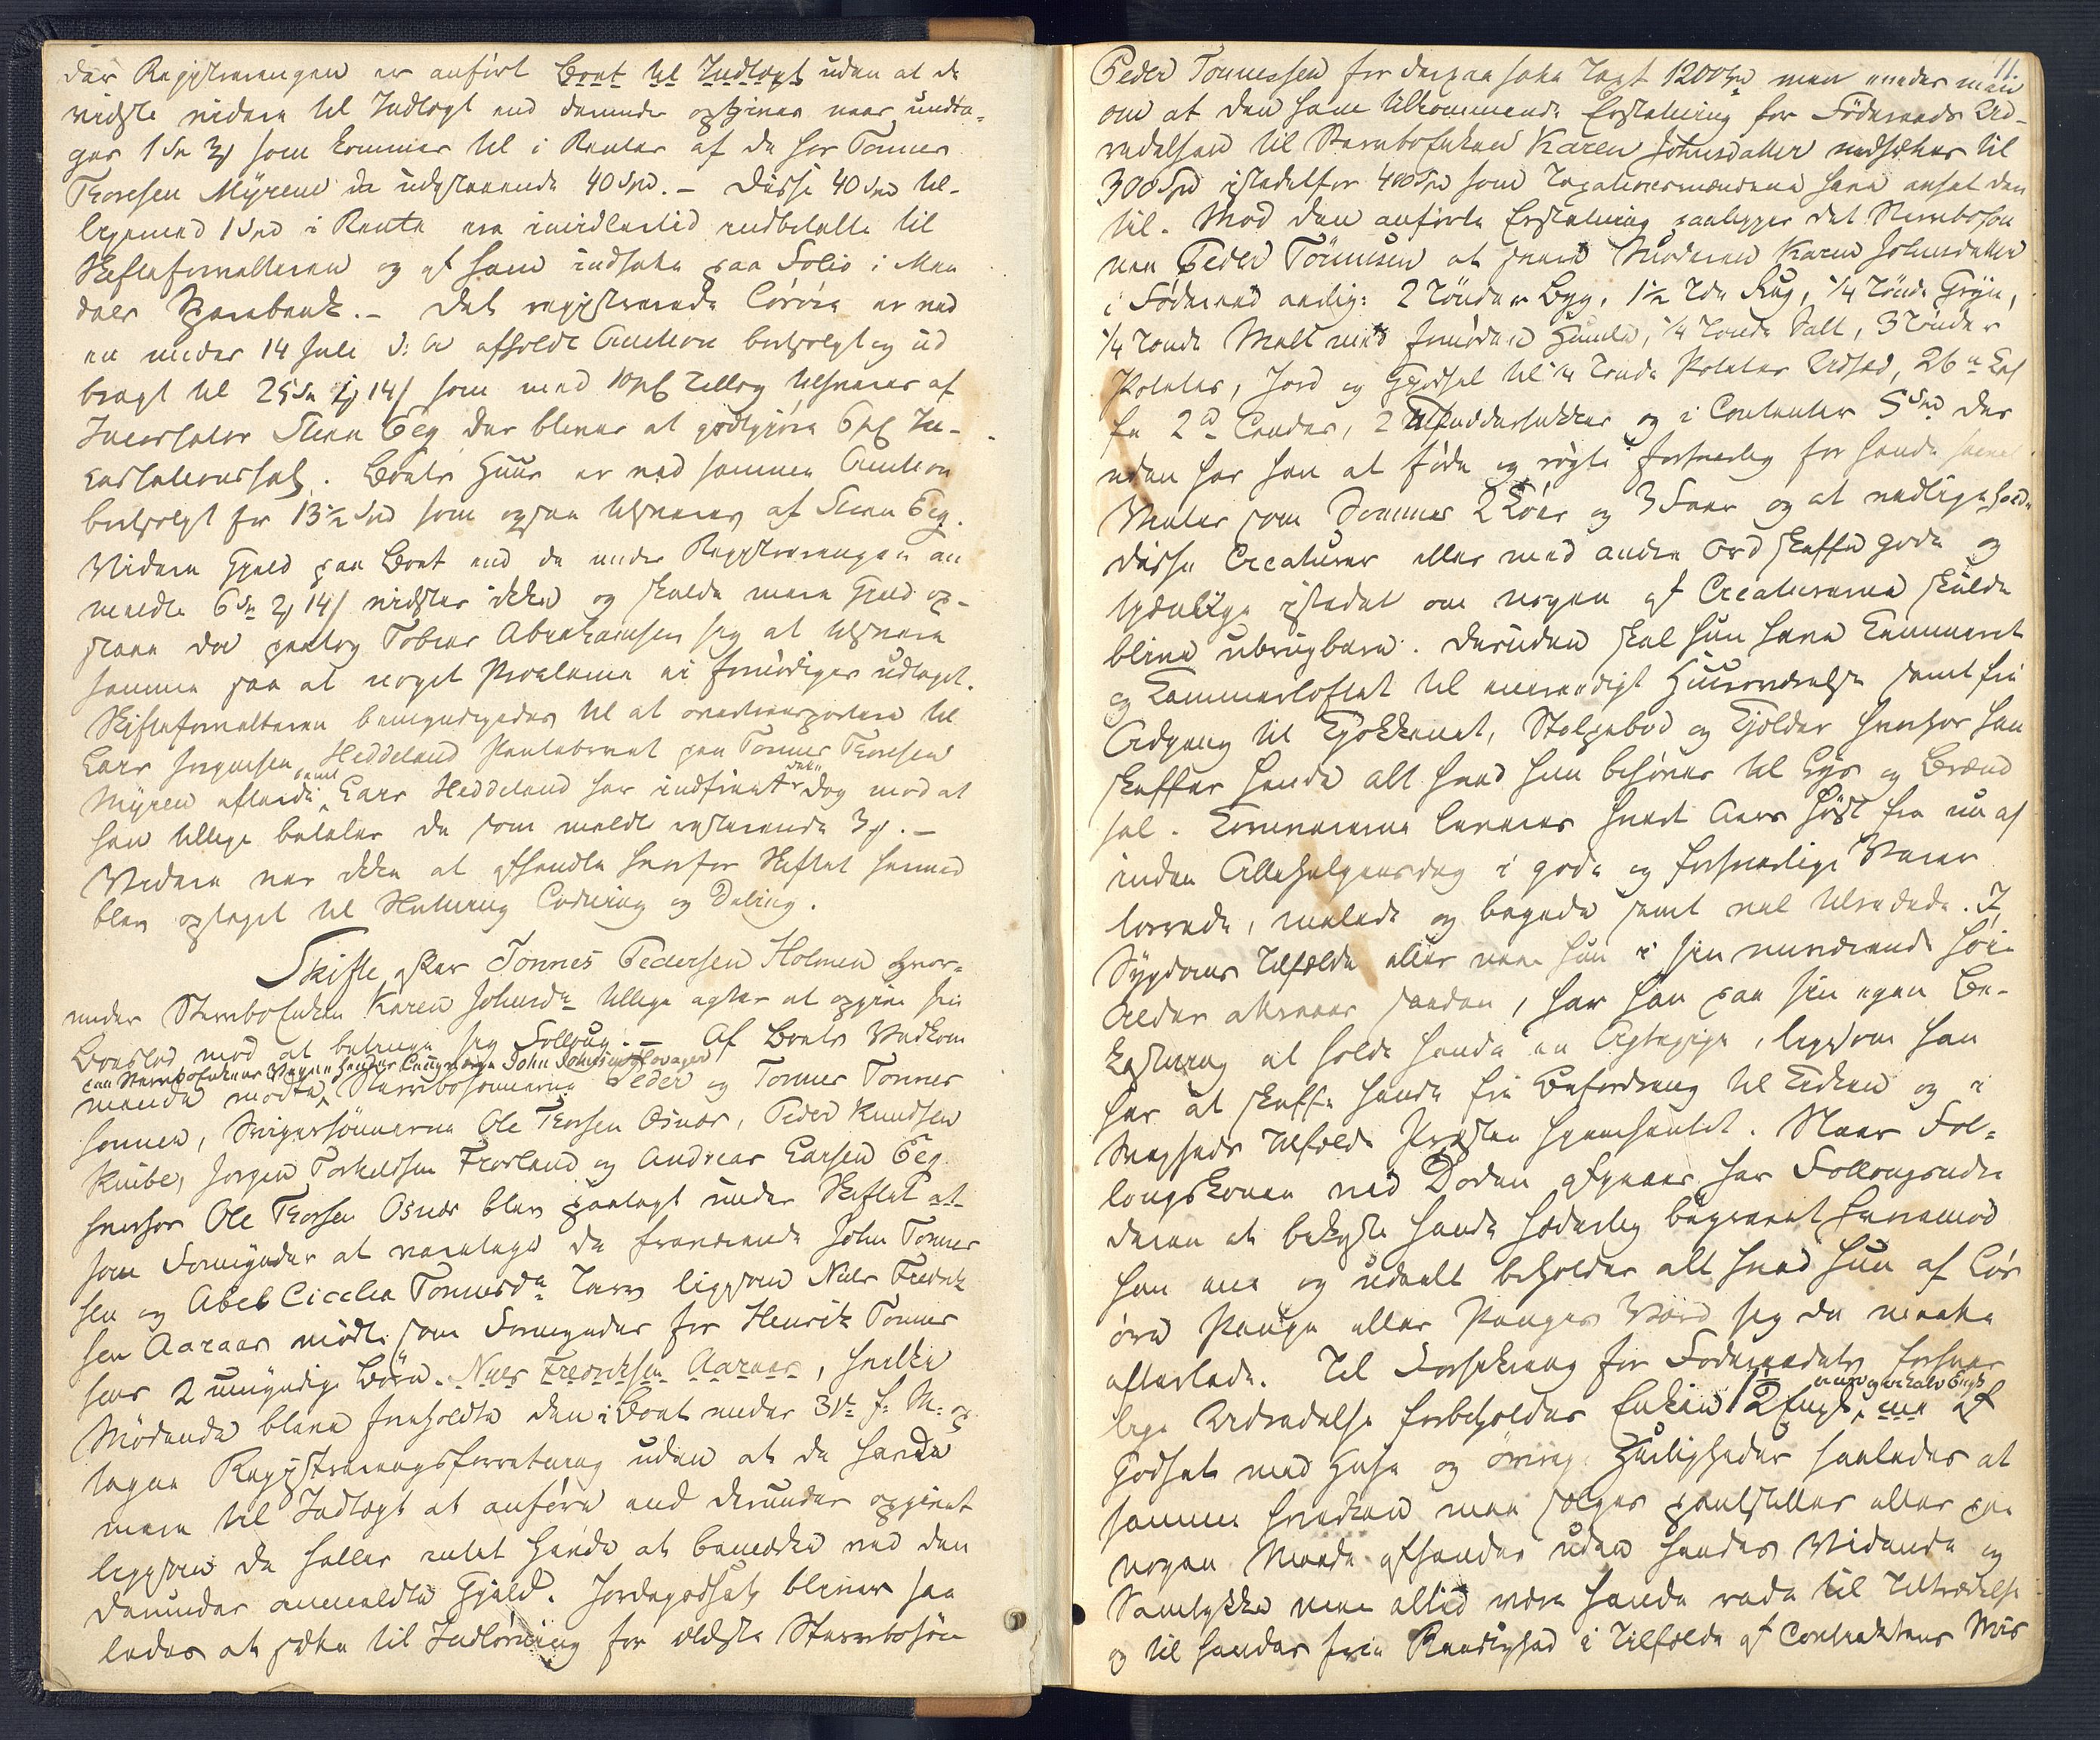 der Registreringen er anført Boet til Indtægt uden at de
vidste videre til Indtægt end derunder opgiven naar undta-
ges 1 Sp 3 som kommer til i Renter af de hos Tønnes
Thoresen Myrene da udestaaende 40 Spd. – Disse 40 Spd til-
ligemed 1 Spd i Rente ere imidlertid indbetalte til
Skifteforvalteren og af ham indsatte paa Folio i Man
dals Sparebank. – Det registrerede Løsøre er ved
en under 14 Juli d: A: afholdt Auction bortsolgt og ud
bragt til 25 Sp 14 s som med 10 pC Tillæg tilsvares af
Incassator Steen Eeg der bliver at godtgjøre 6 pC In-
cassationssal. Boets Huus er ved samme Auction
bortsolgt for 13½ Spd som ogsaa tilsvares af Steen Eeg.
Videre Gjæld paa Boet end de under Registreringen an
meldte 6 Sp 2 14 s vidstes ikke og skulde mere Gjæld op-
staae da paatog Tobias Abrahamsen sig at tilsvare
samme saa at noget Proclama ei fornødiges udtaget.
Skifteforvalteren bemyndigedes til at overtransportere til
Lars Jørgensen Heddeland Pantebrevet paa Tønnes Thoresen
Myren efterdi samt Lars Heddeland har indfriet det dog mod at
han tillige betaler de som meldt resterende 3. –
Videre var ikke at afhandle hvorfor Skiftet hermed
blev optaget til Slutning Lodning og Deling.
Skifte efter Tønnes Pedersen Holmen hvor-
under Sterboenken Karen Johnsdr tillige agter at opgive sin
Boeslod mod at betinge sig Follaug. – Af Boets Vedkom
paa Sterboenkens Vegne hendes Laugværge John Johnsen Hovager
mende mødte Sterbosønnerne Peder og Tønnes Tønnes
sønner, Svigersønnerne Ole Thorsen Osnes, Peder Knudsen
Knibe, Jørgen Torkildsen Frørland og Andreas Larsen Eeg
hvorhos Ole Thorsen Osnes blev paalagt under Skiftet at
som Formynder at varetage de fraværende John Tønnes
sen og Abel Cicelia Tønnesdr Tarv ligesom Niels Fredrik
sen Aaraas mødte som Formynder for Henrik Tønnes
sens 2 umyndige Børn. Niels Fredriksen Aaraas, hvilke
Mødende bleve foreholdte den i Boet under 31te f: M: op
tagne Registreringsforretning uden at de havde
mere til Indtægt at anføre end derunder opgivet
ligesom de heller intet havde at bemærke ved den
derunder anmeldte Gjæld. Jordegodset bliver saa
ledes at sætte til Indløsning for ældste Sterbosøn
11.
Peder Tønnessen for derpaa satte Taxt 1200 Spd men enedes man
om at den ham tilkommende Erstatning for Føderaads Ud-
redelsen til Sterboenken Karen Johnsdatter nedsættes til
300 Spd istedetfor 400 Spd som Taxationsmændene have ansat den
til. Mod den anførte Erstatning paaligger det Sterbosøn
nen Peder Tønnesen at svare Moderen Karen Johnsdatter
i Føderaad aarlig: 2 Tønder Byg, 1½ Tde Rug, ¼ Tønde Gryn,
¼ Tønde Malt med fornøden Humle, ¼ Tønde Salt, 3 Tønder
Poteter, Jord og Gjødsel til ¼ Tønde Poteter Udsæd, 2
fe 2 Candis, 2 Puddersukker og i Contanter 5 Spd des
uden har han at føde og røgte forsvarlig for hende saavel
Vinter som Sommer 2 Køer og 3 Faar og at vedligeholde
disse Creaturer eller med andre Ord skaffe gode og
tjenlige istedet om nogen af Creaturerne skulde
blive ubrugbare. Desuden skal hun have Kammeret
og Kammerloftet til eneraadigt Huusværelse samt fri
Adgang til Kjøkkenet, Stolpebod og Kjelder hvorhos han
skaffer hende alt hvad hun behøver til Lys og Brænd
sel. Kornvarerne leveres hvert Aars Høst fra nu af
inden Allehelgensdag i gode og forsvarlige Varer
tørrede, malede og bagede samt vel tilredede. I
Sygdoms Tilfælde eller naar hun i sin nuværende høie
Alder attraaer saadan, har han paa sin egen Be-
kostning at holde hende en Agtepige, ligesom han
har at skaffe hende fri Befordring til Kirken og i
Svagheds Tilfælde Præsten hjemhentet. Naar Fol-
laugskonen ved Døden afgaaer har Follaugsyde
deren at bekoste hende hæderlig begravet hvorimod
han ene og udeelt beholder alt hvad hun af Løs
øre Penge eller Penges Værd sig da maatte
efterlade. Til Forsikring for Føderaadets forsvar
lige Udredelse forbeholder Enken 1½ Engl: een og en halv Engl: af
Godset med Huse og øvrige Herligheder saaledes at
samme hverken maa sælges pantsættes eller paa
nogen Maade afhændes uden hendes Vidende og
Samtykke men altid være hende rede til Tiltrædelse
og til hendes frie Raadighed i Tilfælde af Contraktens Mis